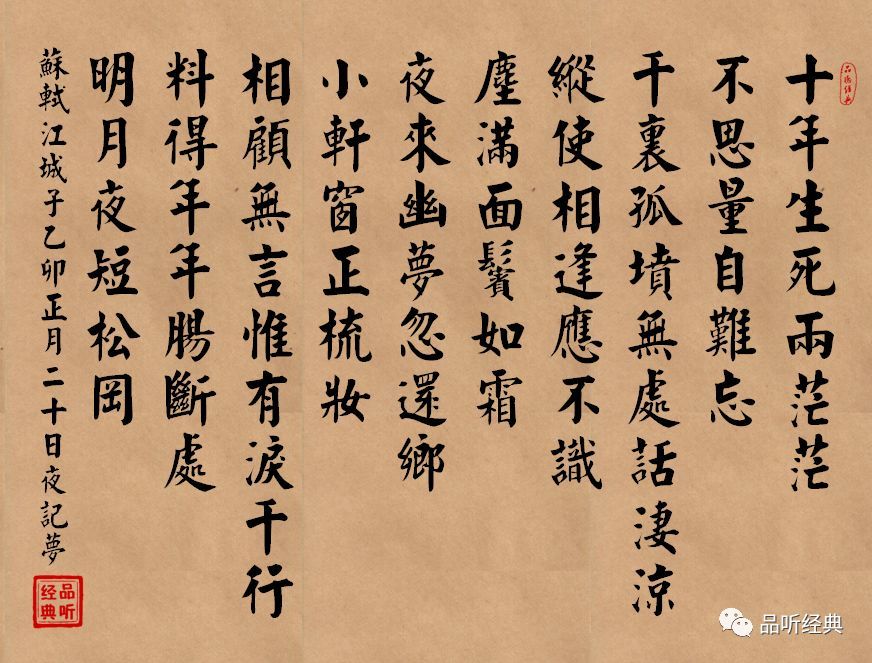 品听经典
十年生死兩茫茫
不思量自難忘
千裏孤墳無處話淒涼
縱使相逢應不識
塵滿面鬢如霜
夜來幽夢忽還鄉
小軒窗正梳妝
相顧無言惟有淚千行
料得年年腸斷處
明月夜短松岡
蘇軾江城子乙卯正月二十日夜記夢
品听
经典
品听经典